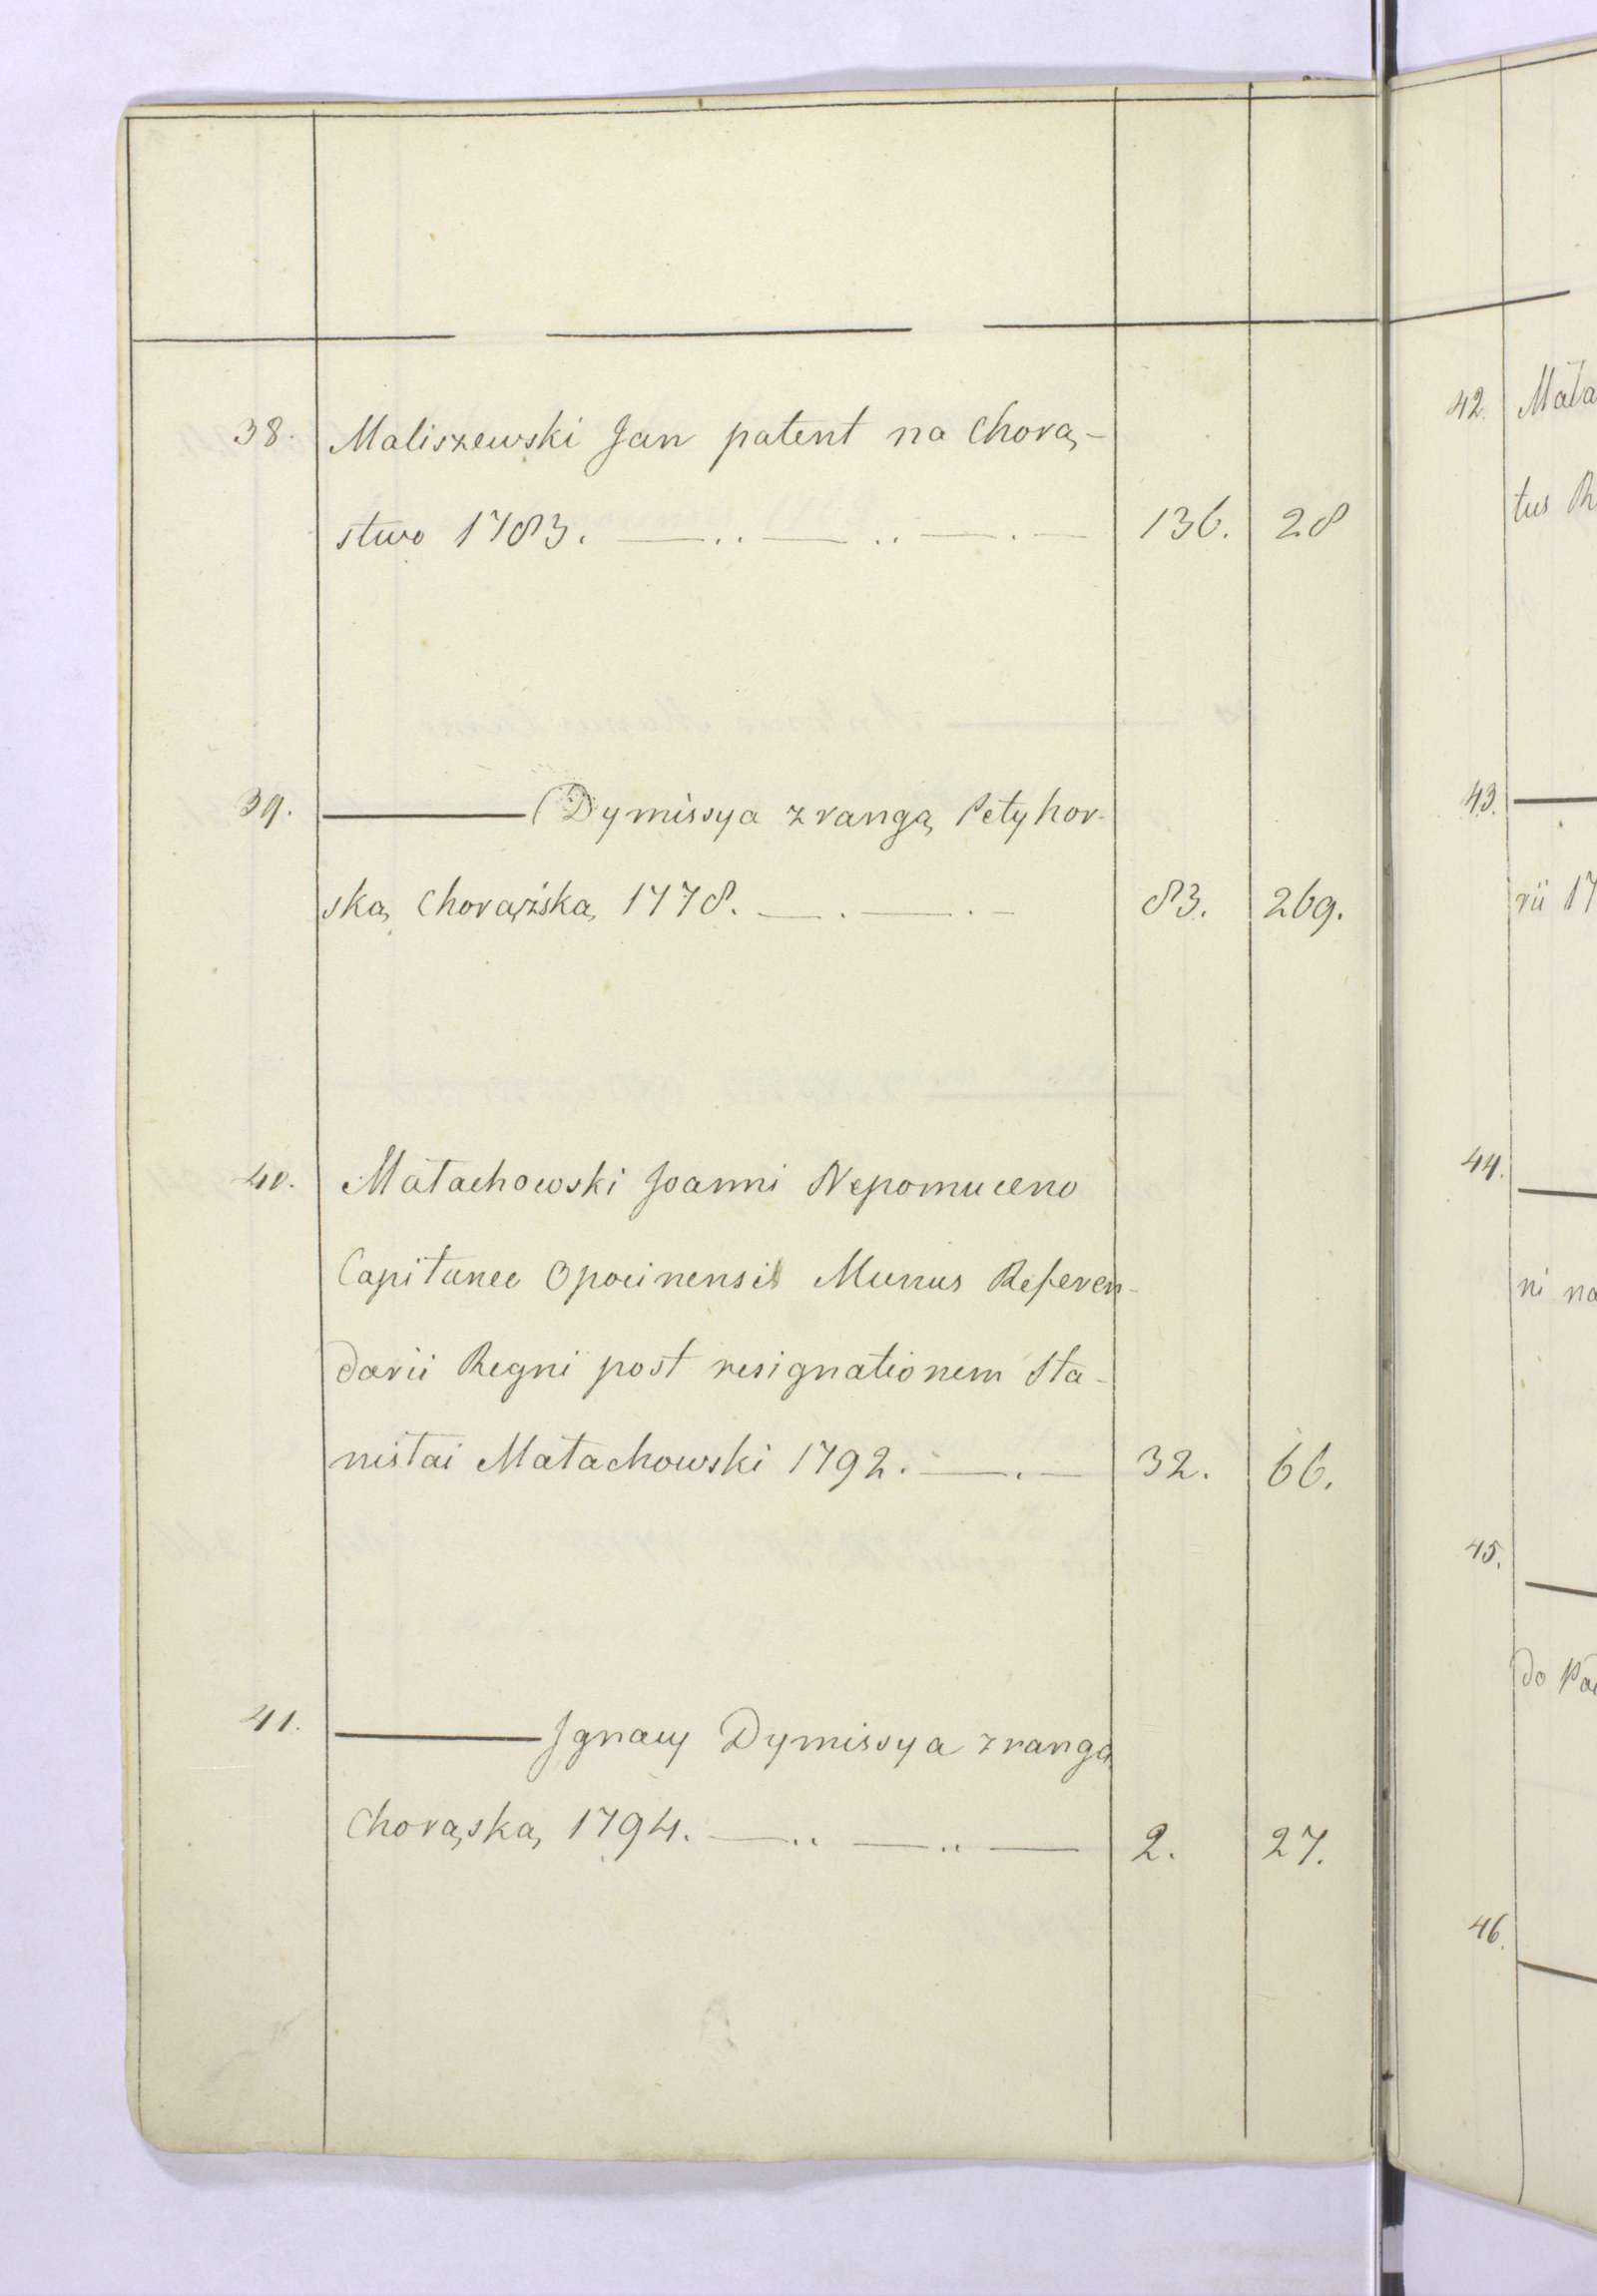 38. Maliszewski Jan patent na Chorą-
stwo 1783. 136. 28
39. Dymissya z rangą Petyhor-
ską Chorążską 1778. 83. 269.
40. Małachowski Joanni Nepomuceno
Capitaneo Opocinensis Munus Referen-
darii Regni post resignationem Sta-
nisłai Małachowski 1792. 32. 66.
41. Ignacy Dymissya z rangą
Chorąską 1794. 2. 27.
42. Mała
tus R
43.
rii 17
44.
ni na
45.
do
46.